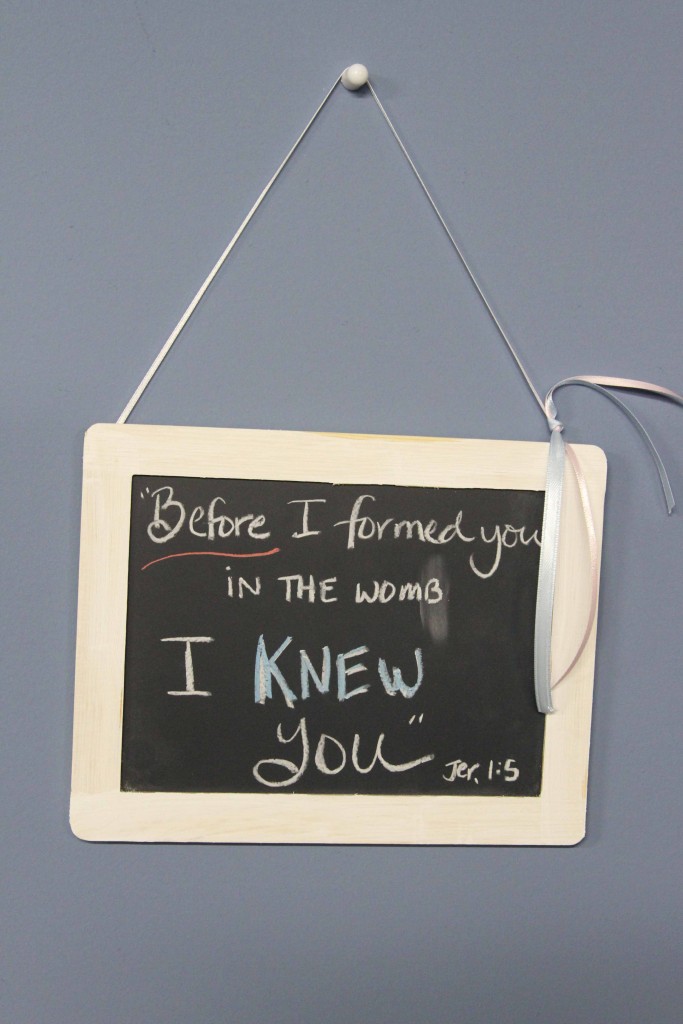 "Before I formed you
IN THE WOMB
I KNEW
you"
Jer. 1:5